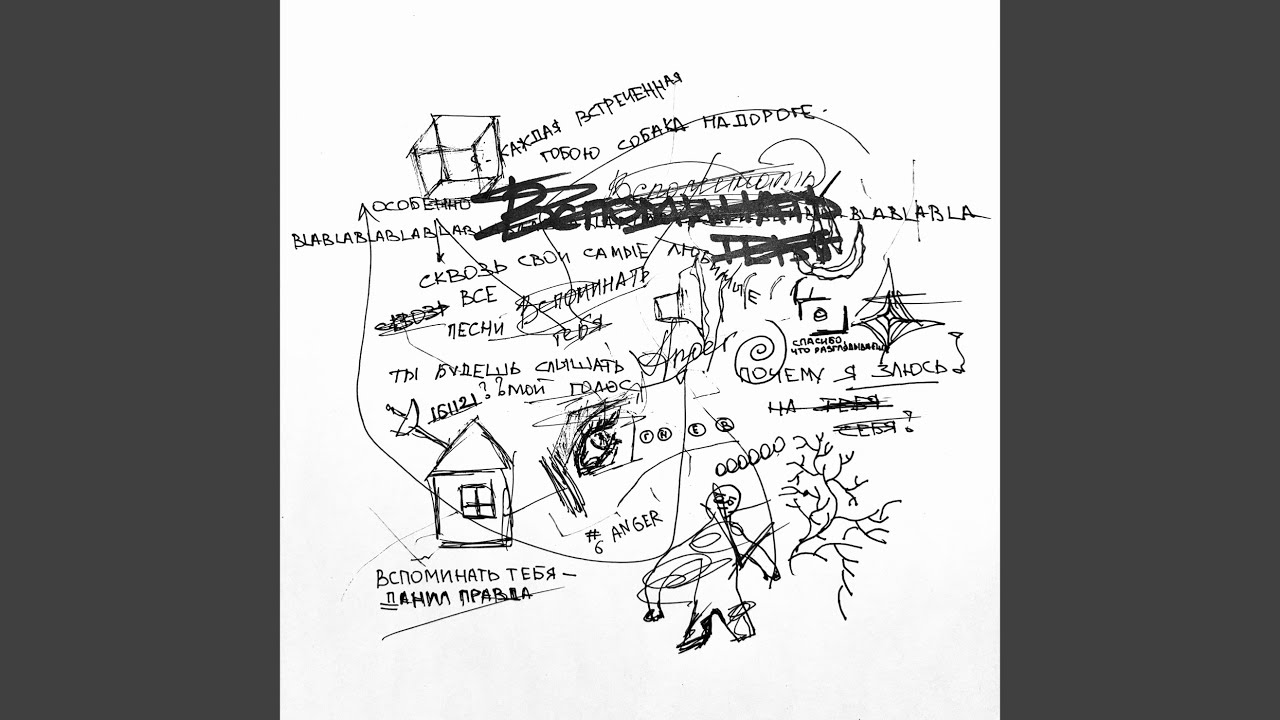 Я - КАЖДАЯ ВСТРЕЧЕННАЯ
ТОБОЮ СОБАКА НА ДОРОГЕ.
Вспоминать
ОСОБЕННО
Вспоминать
BLABLABLABLABLABLABLA
BLABLABLA
ТЕБЯ
СКВОЗЬ СВОИ САМЫЕ ЛЮБ
ИМЫЕ
СКВОЗЬ ВСЕ ВСПОМИНАТЬ
ПЕСНИ ТЕБЯ
Anger
СПАСИБО,
ЧТО РАЗГЛЯДЫВАЕШЬ
ТЫ БУДЕШЬ СЛЫШАТЬ
ПОЧЕМУ Я ЗЛЮСЬ
161121 ?? МОЙ ГОЛОС
НА ТЕБЯ
СЕБЯ?
# ANGER
6
ВСПОМИНАТЬ ТЕБЯ —
ДАНИЛ ПРАВДА